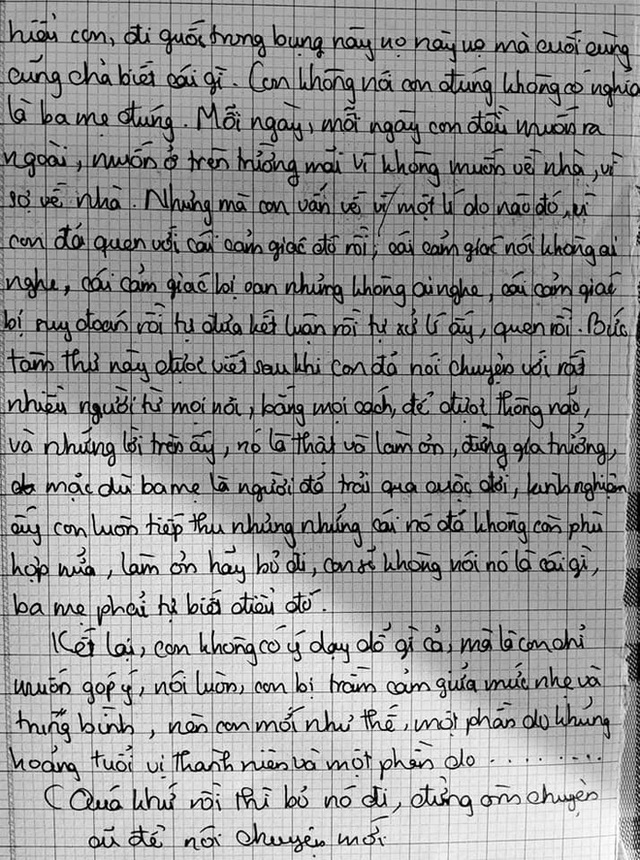 hiểu con, đi guốc trong bụng này nọ này nọ mà cuối cùng
cũng chả biết cái gì. Con không nói con đúng không có nghĩa
là ba mẹ đúng. Mỗi ngày, mỗi ngày con đều muốn ra
ngoài, muốn ở trên trường mãi vì không muốn về nhà, vì
sợ về nhà. Nhưng mà con vẫn về vì một lí do nào đó, vì
con đã quen với cái cảm giác đó rồi, cái cảm giác nói không ai
nghe, cái cảm giác bị oan nhưng không ai nghe, cái cảm giác
bị suy đoán rồi tự đưa kết luận rồi tự xử lí ấy, quen rồi. Bức
tâm thư này được viết sau khi con đã nói chuyện với rất
nhiều người từ mọi nơi, bằng mọi cách, để được thông não,
và những lời trên ấy, nó là thật và làm ơn, đừng gia trưởng,
mặc dù ba mẹ là người đã trải qua cuộc đời, kinh nghiệm
ấy con luôn tiếp thu nhưng những cái nó đã không còn phù
hợp nữa, làm ơn hãy bỏ đi, con sẽ không nói nó là cái gì,
ba mẹ phải tự biết điều đó.
Kết lại, con không có ý dạy dỗ gì cả, mà là con chỉ
muốn góp ý, nói luôn, con bị trầm cảm giữa mức nhẹ và
trung bình, nên con mới như thế, một phần do khủng
hoảng tuổi vị thành niên và một phần do .........
(Quá khứ rồi thì bỏ nó đi, đừng ôm chuyện
cũ để nói chuyện mới